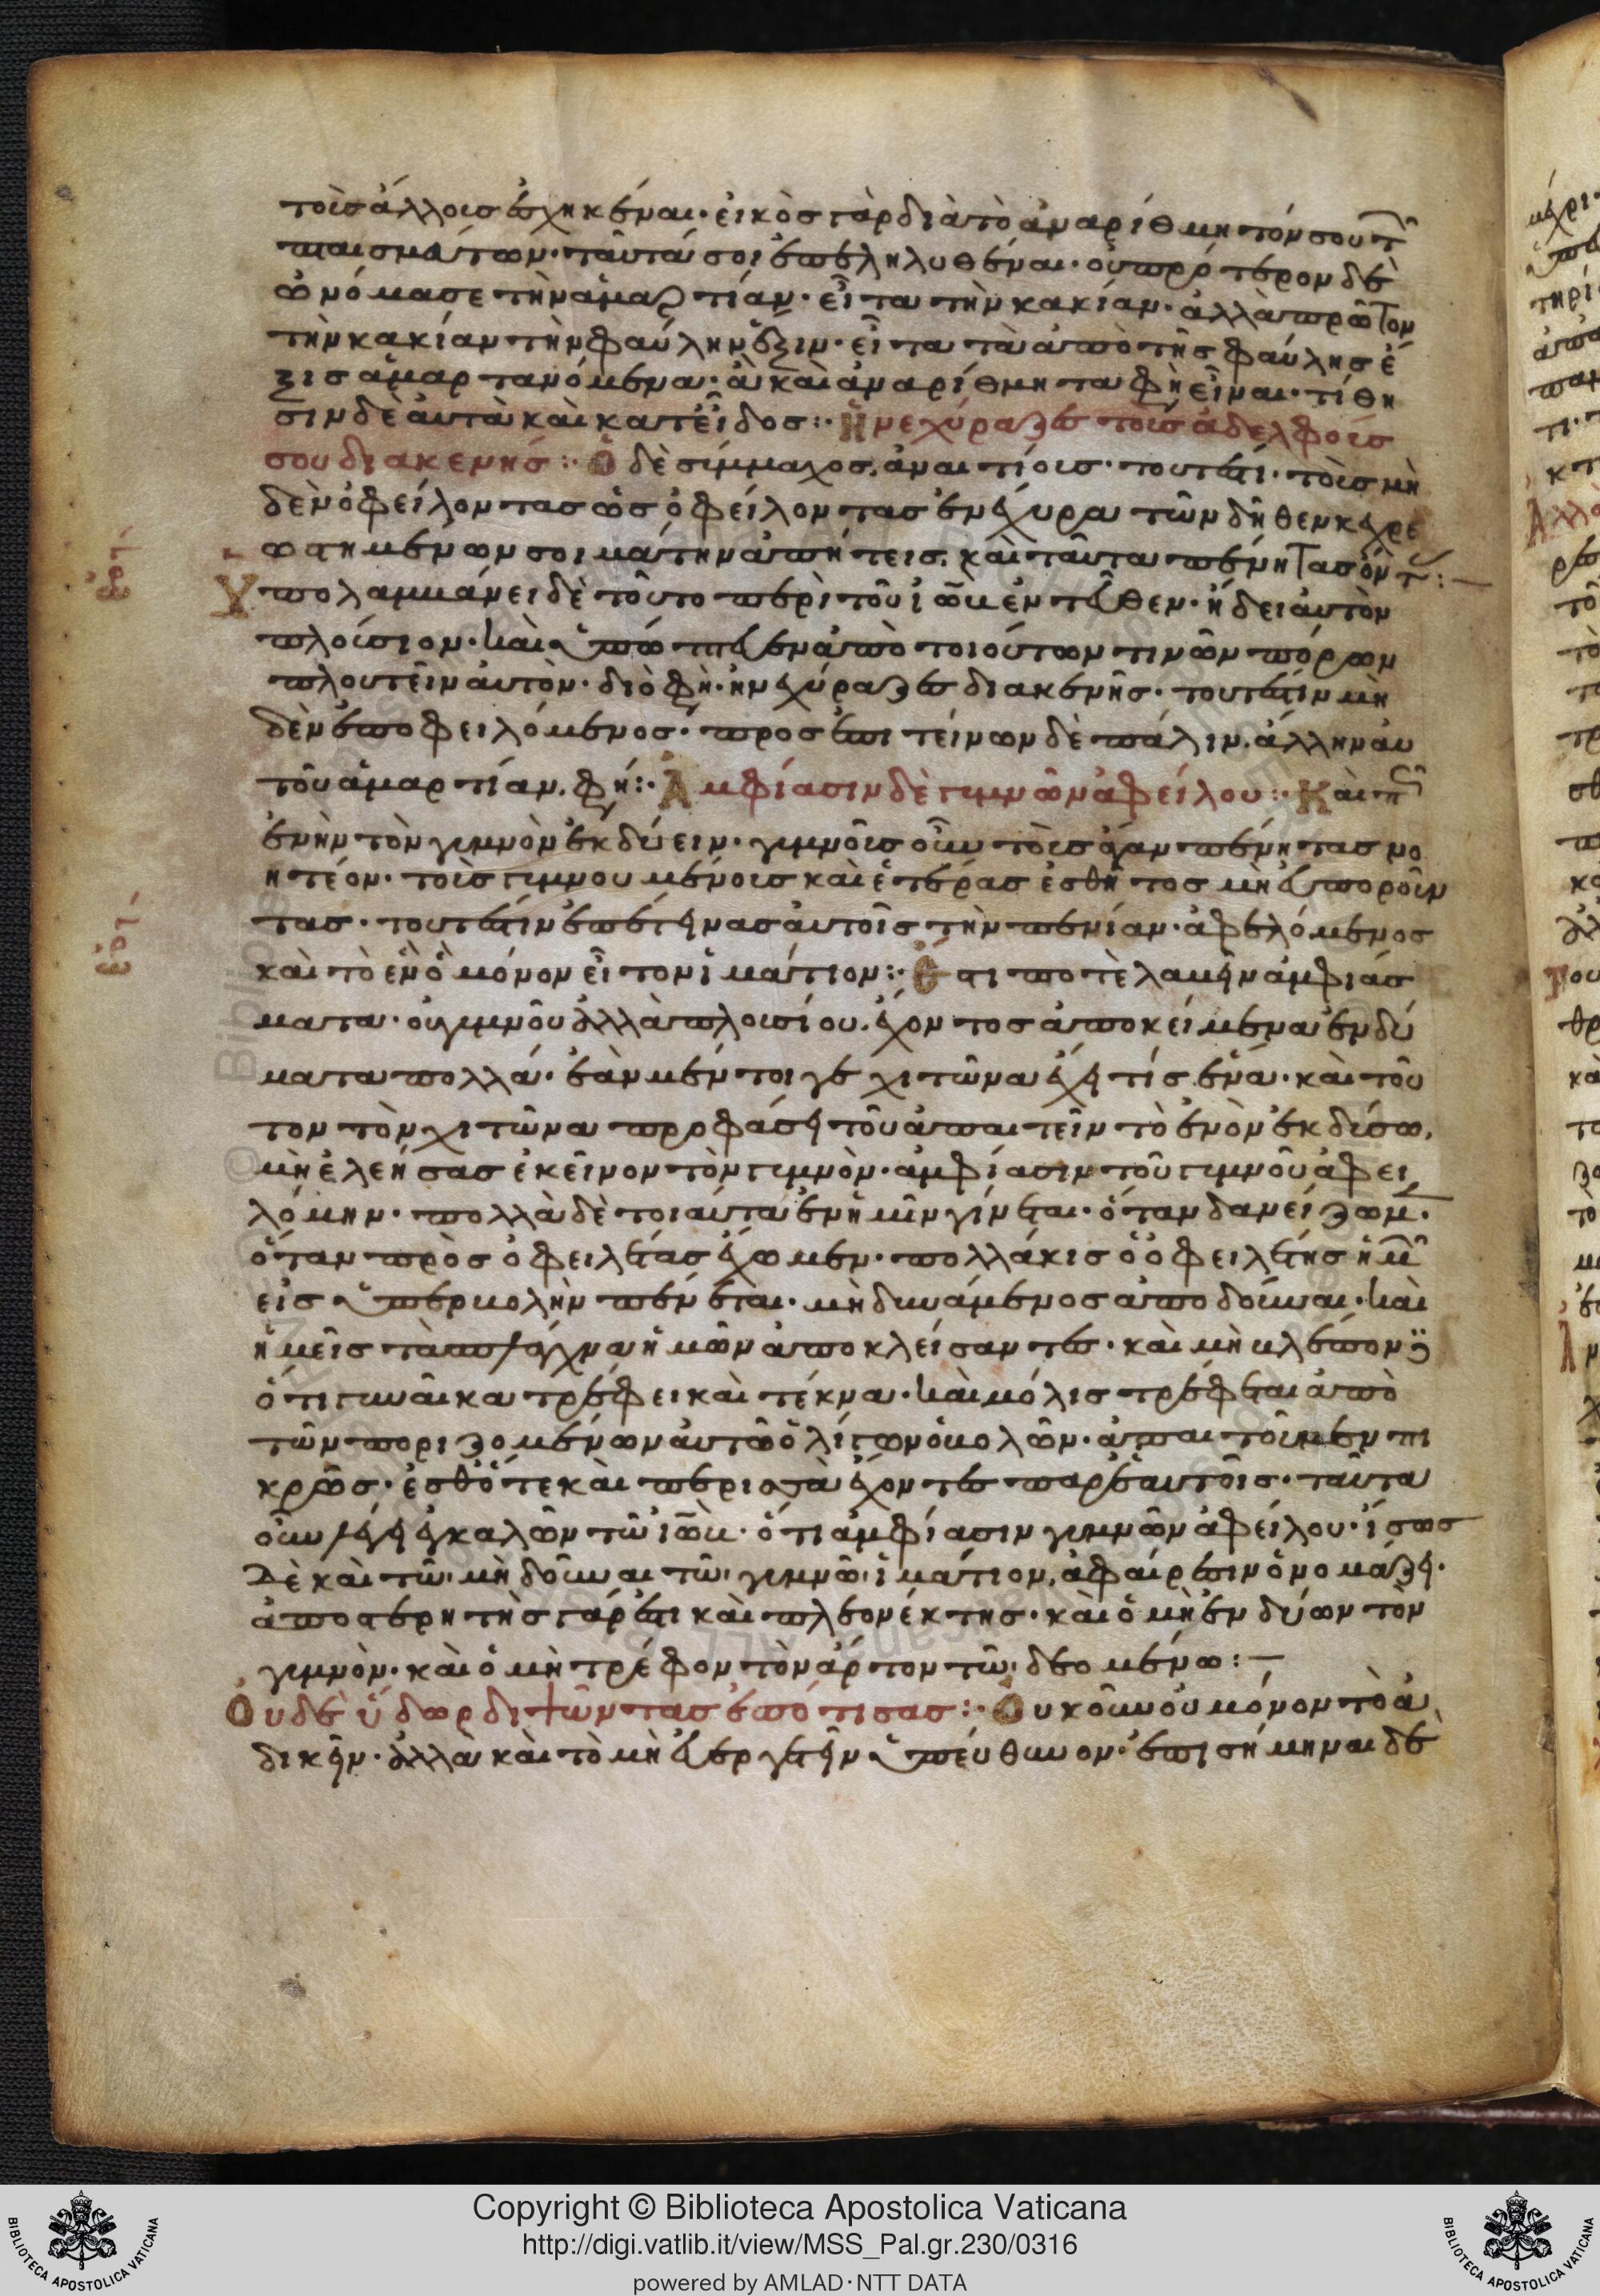 τοῖς ἄλλοις ἐσχηκέναι· εἰκὸς γὰρ διὰ τὸ ἀναρίθμητόν σου τ
πταισμάτων· ταῦτά σοι ἐπεληλυθέναι· οὐ πρότερον δὲ
ὠνόμασε τὴν ἁμαρτίαν· εἶτα τὴν κακίαν· ἀλλὰ πρῶτον
τὴν κακίαν τὴν φαύλην ἕξιν· εἶτα τὰ ἀπὸ τῆς φαύλης ἕ
ξις ἁμαρτανόμενα· ἃ καὶ ἀναρίθμητα φὴ εἶναι· τίθη
σιν δὲ αὐτὰ καὶ κατ εἶδος :· Ἠνεχύραζες τοὺς ἀδελφούς
σου διακενῆς :· Ὁ δὲ σύμμαχος, ἀναιτίους· τουτέστι· τοὺς μη
δὲν ὀφείλοντας ὡς ὀφείλοντας ἐνέχυρα τῶν δῆθεν κεχρε
ωστημένων σοι μάτην ἀπῄτεις, καὶ ταῦτα πένητας ὄντ :—
Ὑπολαμβάνει δὲ τοῦτο περὶ τοῦ ἰὼβ ἐντεῦθεν· ᾔδει αὐτὸν
πλούσιον· καὶ ὑπώπτευεν ἀπὸ τοιούτων τινῶν πόρων
πλουτεῖν αὐτὸν· διὸ φὴ· ἠνεχύραζες διακενῆς· τουτέστιν μη
δὲν ἐποφειλόμενος· προσεπιτείνων δὲ πάλιν, ἄλλην αὐ
τοῦ ἁμαρτίαν, φή :· Ἀμφίασιν δὲ γυμνῶν ἀφείλου :· Καὶ
ἐνῆν τὸν γυμνὸν ἐκδύειν· γυμνοὺς οὖν τοὺς ἄγαν πένητας νο
ητέον· τοὺς γυμνουμένους καὶ ἑτέρας ἐσθῆτος μὴ εὐποροῦν
τας· τουτέστιν ἐπέτεινας αὐτοῖς τὴν πενίαν· ἀφελόμενος
καὶ τὸ ἓν ὃ μόνον εἶχον ἱμάτιον :· Ὅτι ποτὲ λαβεῖν ἀμφιάσ
ματα· οὐ γυμνοῦ ἀλλὰ πλουσίου, ἔχοντος ἀποκείμενα ἐνδύ
ματα πολλά· ἐὰν μέντοιγε χιτῶνα ἔχῃ τίς ἕνα· καὶ τοῦ
τον τὸν χιτῶνα προφάσει τοῦ ἀπαιτεῖν τὸ ἐνὸν ἐκδύσω,
μὴ ἐλεήσας ἐκεῖνον τὸν γυμνὸν· ἀμφίασιν τοῦ γυμνοῦ ἀφει
λόμην· πολλὰ δὲ τοιαῦτα ἐν ἡμῖν γίνεται· ὅταν δανείζωμ·
ὅταν πρὸς ὀφειλέτας ἔχωμεν· πολλάκις ὁ ὀφειλέτης ἡμ
εἰς ὑπερβολὴν πένεται· μὴ δυνάμενος ἀποδοῦναι· καὶ
ἡμεῖς τὰ σπλάγχνα ἡμῶν ἀποκλείσαντες· καὶ μὴ βλέποντ
ὅτι γυναῖκα τρέφει καὶ τέκνα· καὶ μόλις τρέφεται ἀπὸ
τῶν ποριζομένων αὐτῶ ὀλίγων ὀβολῶν· ἀπαιτοῦμεν πι
κρῶς· ἐσθότε καὶ περισσὰ ἔχοντες παρ ἑαυτοῖς· ταῦτα
οὖν λέγει ἐγκαλῶν τῶ ἰώβ· ὅτι ἀμφίασιν γυμνῶν ἀφείλου· ἴσως
δὲ καὶ τῶ· μὴ δοῦναι τῶ· γυμνῶ· ἱμάτιον, ἀφαίρεσιν ὀνομάζει·
ἀποστερητὴς γάρ ἐστι καὶ πλεονέκτης· καὶ ὁ μὴ ἐνδύων τὸν
γυμνόν· καὶ ὁ μὴ τρέφον τὸν ἄρτον τῶ· δεομένω :—
Οὐδὲ ὕδωρ διψῶντας ἐπότισας :· Οὐκοῦν οὐ μόνον τὸ ἀ
δικεῖν· ἀλλὰ καὶ τὸ μὴ εὐεργετεῖν ὑπεύθυνον· ἐπισήμηναι δὲ
Copyright © Biblioteca Apostolica Vaticana
http://digi.vatlib.it/view/MSS_Pal.gr.230/0316
powered by AMLAD·NTT DATA
BIBLIOTECA APOSTOLICA VATICANA
BIBLIOTECA APOSTOLICA VATICANA